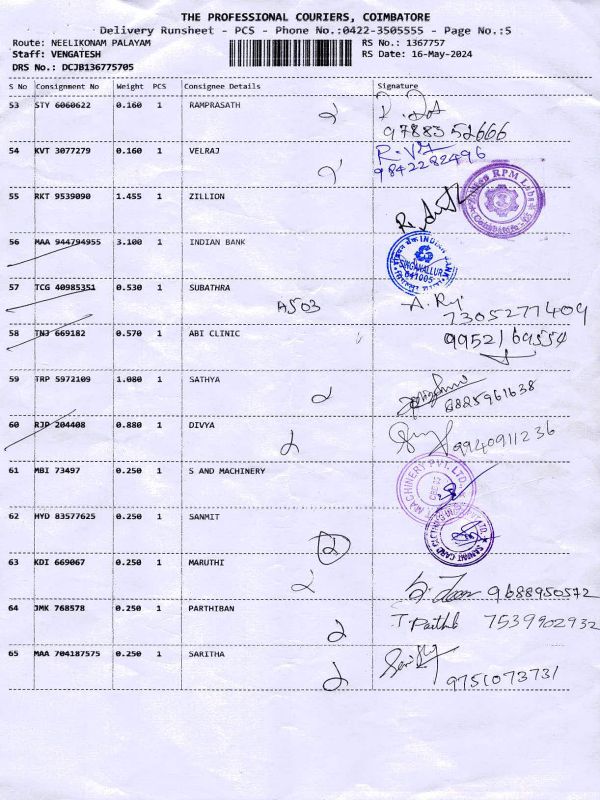 THE PROFESSIONAL COURIERS, COIMBATORE
Delivery Runsheet - PCS - Phone No.:0422-3505555 - Page No.:5
Route: NEELIKONAM PALAYAM RS No.: 1367757
Staff: VENGATESH RS Date: 16-May-2024
DRS No.: DCJB136775705
S No Consignment No Weight PCS Consignee Details Signature
53 STY 6060622 0.160 1 RAMPRASATH
97883 52666
54 KVT 3077279 0.160 1 VELRAJ
9842282496
55 RKT 9539090 1.455 1 ZILLION
RPM Labs
Coimbatore
56 MAA 944794955 3.100 1 INDIAN BANK
INDIAN BANK
SINGANALLUR
641005
57 TCG 40985351 0.530 1 SUBATHRA A503 A. Raj
7305277409
58 TNJ 669182 0.570 1 ABI CLINIC 9952169554
59 TRP 5972109 1.080 1 SATHYA
8825961638
60 RJP 204408 0.880 1 DIVYA
9940911236
61 MBI 73497 0.250 1 S AND MACHINERY
MACHINERY PVT. LTD.
62 HYD 83577625 0.250 1 SANMIT
63 KDI 669067 0.250 1 MARUTHI
9688950572
64 JMK 768578 0.250 1 PARTHIBAN T. Parthb 7539902932
65 MAA 704187575 0.250 1 SARITHA
9751073731